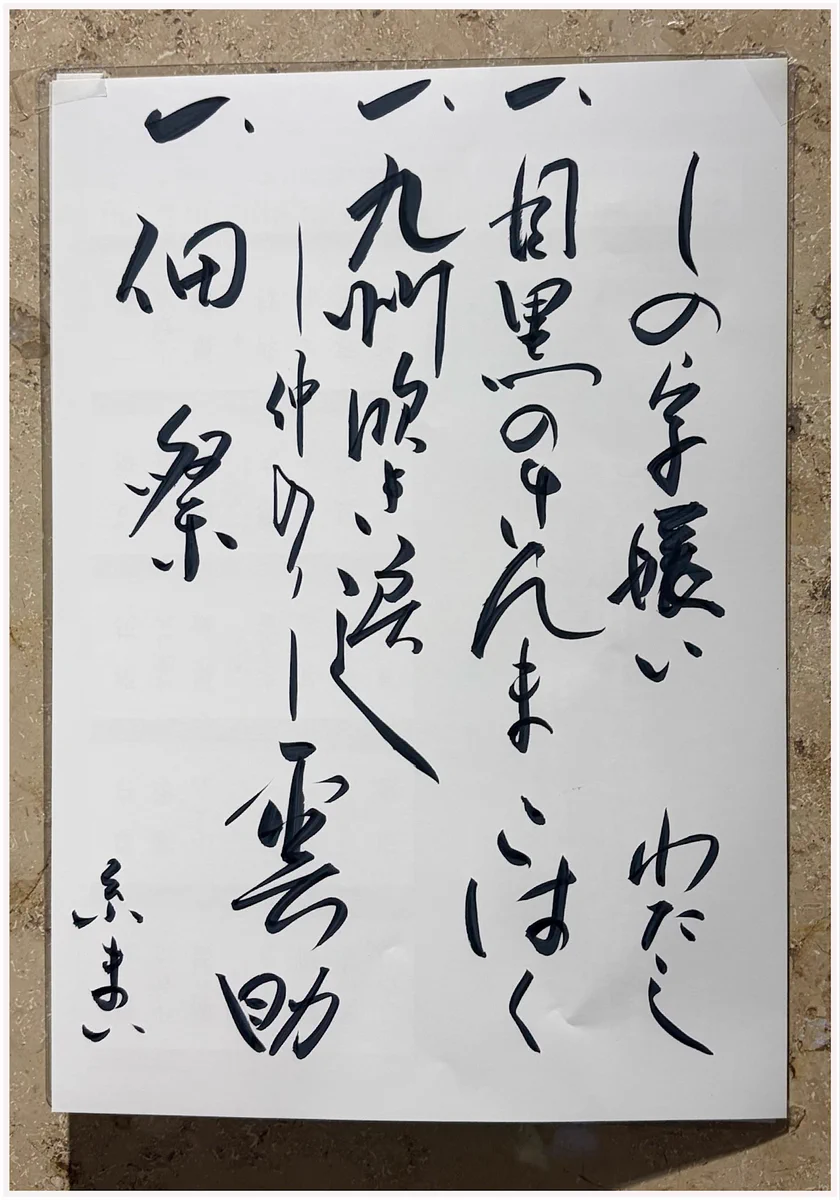 しの字嫌い わたし
一、目黒のさんま こはく
一、九州吹き戻し
｜仲入り｜ 雲助
一、佃祭